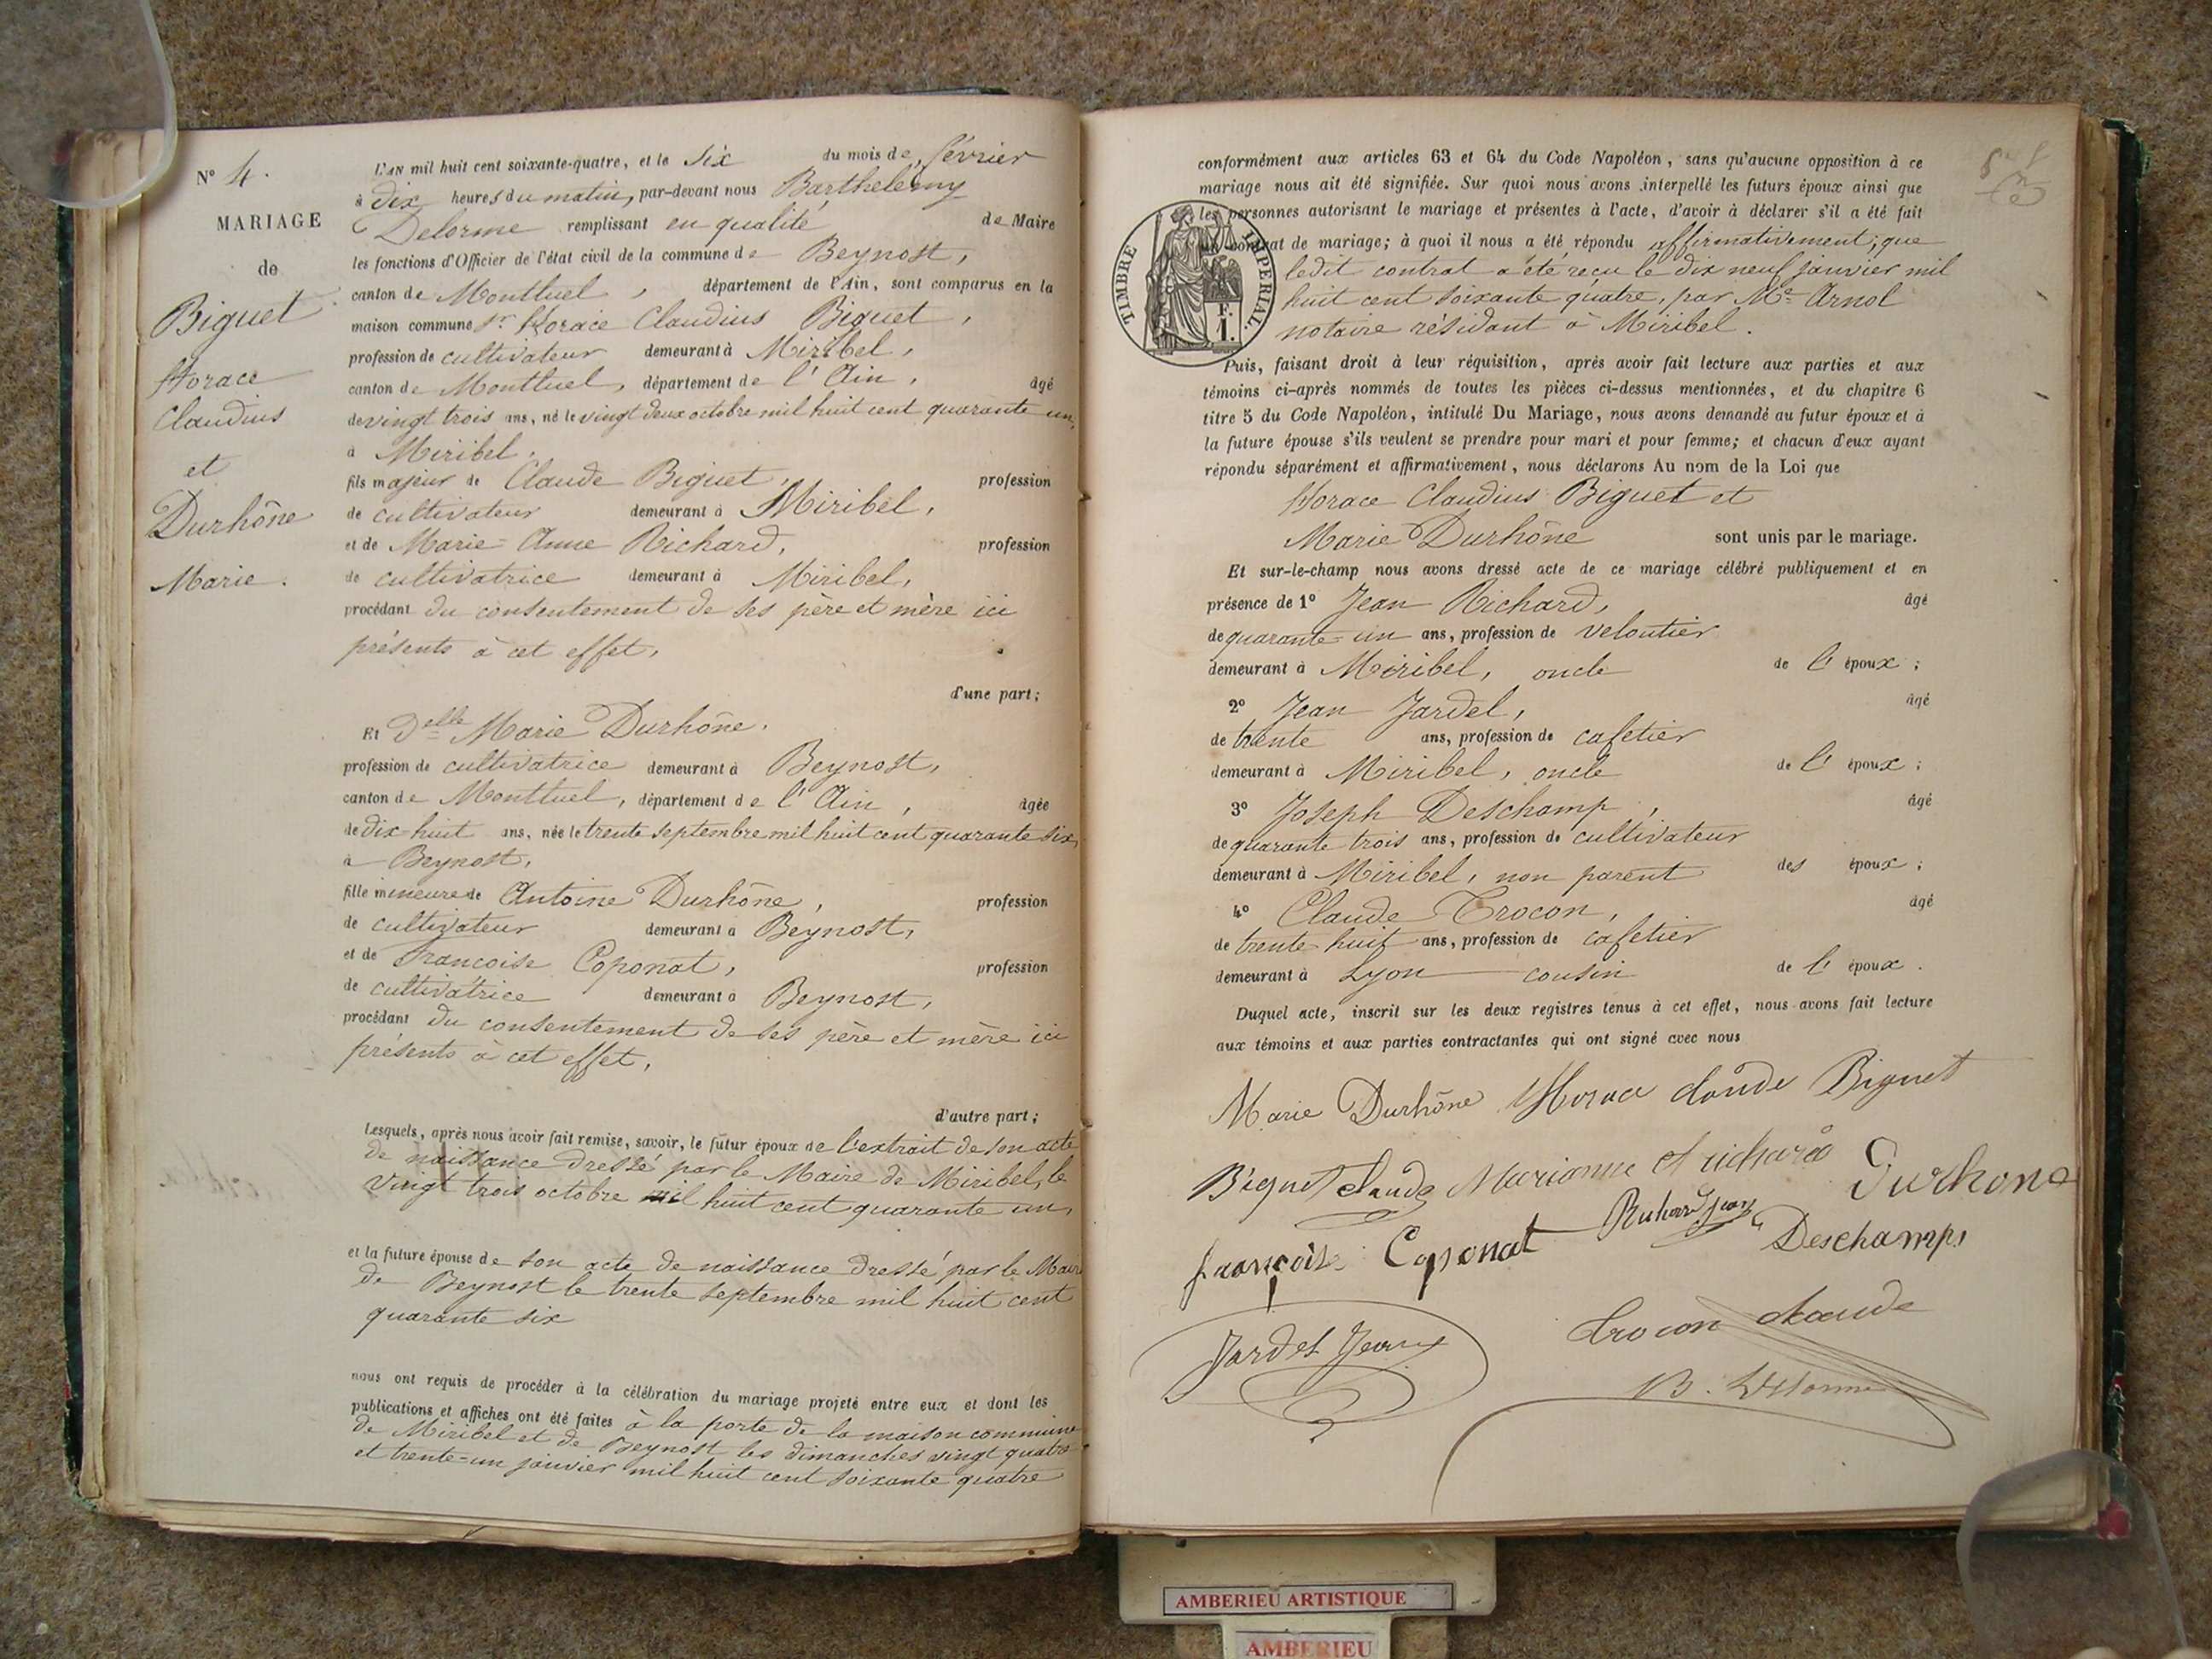 N° 4.
MARIAGE
de
Biguet
Horace
Claudius
et
Durhône
Marie.
L'AN mil huit cent soixante-quatre, et le Six du mois de février
à Dix heures du matin, par-devant nous Barthelemy
Delorme remplissant en qualité de Maire
les fonctions d'Officier de l'état civil de la commune de Beynost,
canton de Montluel, département de l'Ain, sont comparus en la
maison commune Sr Horace Claudius Biguet,
profession de cultivateur demeurant à Miribel,
canton de Montluel, département de l'Ain, âgé
de vingt trois ans, né le vingt deux octobre mil huit cent quarante un,
à Miribel,
fils majeur de Claude Biguet, profession
de cultivateur demeurant à Miribel,
et de Marie-Anne Richard, profession
de cultivatrice demeurant à Miribel,
procédant du consentement de ses père et mère ici
présents à cet effet,
d'une part;
Et Delle Marie Durhône.
profession de cultivatrice demeurant à Beynost,
canton de Montluel, département de l'Ain, âgée
de dix-huit ans, née le trente septembre mil huit cent quarante six,
à Beynost,
fille mineure de Antoine Durhône, profession
de cultivateur demeurant à Beynost,
et de Francoise Coponat, profession
de cultivatrice demeurant à Beynost,
procédant du consentement de ses père et mère ici
présents à cet effet,
d'autre part;
Lesquels, après nous avoir fait remise, savoir, le futur époux de l'extrait de son acte
de naissance dressé par le Maire de Miribel, le
vingt trois octobre mil huit cent quarante un,
et la future épouse de son acte de naissance dressé par le Maire
de Beynost le trente septembre mil huit cent
quarante six
nous ont requis de procéder à la célébration du mariage projeté entre eux et dont les
publications et affiches ont été faites à la porte de la maison commune
de Miribel et de Beynost les dimanches vingt quatre
et trente-un janvier mil huit cent soixante quatre
conformément aux articles 63 et 64 du Code Napoléon, sans qu'aucune opposition à ce
mariage nous ait été signifiée. Sur quoi nous avons interpellé les futurs époux ainsi que
les personnes autorisant le mariage et présentes à l'acte, d'avoir à déclarer s'il a été fait
un contrat de mariage; à quoi il nous a été répondu affirmativement; que
ledit contrat a été reçu le dix neuf janvier mil
huit cent soixante quatre, par Me Arnol
notaire résidant à Miribel.
TIMBRE IMPERIAL.
F.
1.
Puis, faisant droit à leur réquisition, après avoir fait lecture aux parties et aux
témoins ci-après nommés de toutes les pièces ci-dessus mentionnées, et du chapitre 6
titre 5 du Code Napoléon, intitulé Du Mariage, nous avons demandé au futur époux et à
la future épouse s'ils veulent se prendre pour mari et pour femme; et chacun d'eux ayant
répondu séparément et affirmativement, nous déclarons Au nom de la Loi que
Horace Claudius Biguet et
Marie Durhône sont unis par le mariage.
Et sur-le-champ nous avons dressé acte de ce mariage célébré publiquement et en
présence de 1° Jean Richard, âgé
de quarante-un ans, profession de veloutier
demeurant à Miribel, oncle de l'époux;
2° Jean Jardel, âgé
de trente ans, profession de cafetier
demeurant à Miribel, oncle de l'époux;
3° Joseph Deschamp, âgé
de quarante trois ans, profession de cultivateur
demeurant à Miribel, non parent des époux;
4° Claude Trocon, âgé
de trente-huit ans, profession de cafetier
demeurant à Lyon cousin de l'époux.
Duquel acte, inscrit sur les deux registres tenus à cet effet, nous avons fait lecture
aux témoins et aux parties contractantes qui ont signé avec nous
Marie Durhône Horace Claude Biguet
Biguet Claude Marianne Richard Durhone
françoise Coponat Richard Jean Deschamps
Jardel Jean trocon claude
B. Delorme
AMBERIEU ARTISTIQUE
AMBERIEU